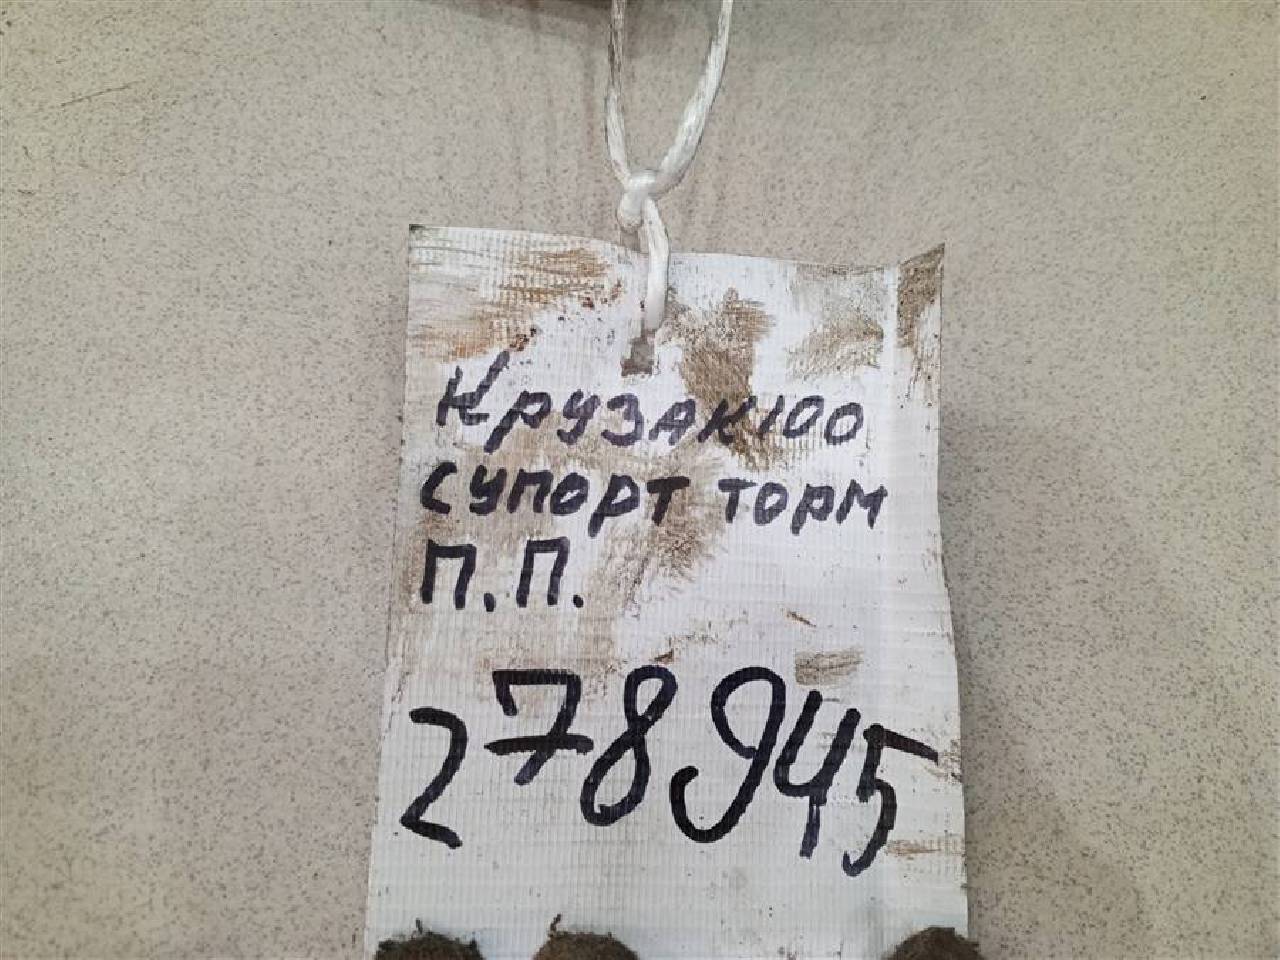 Крузак 100
супорт торм
п.п.
278945